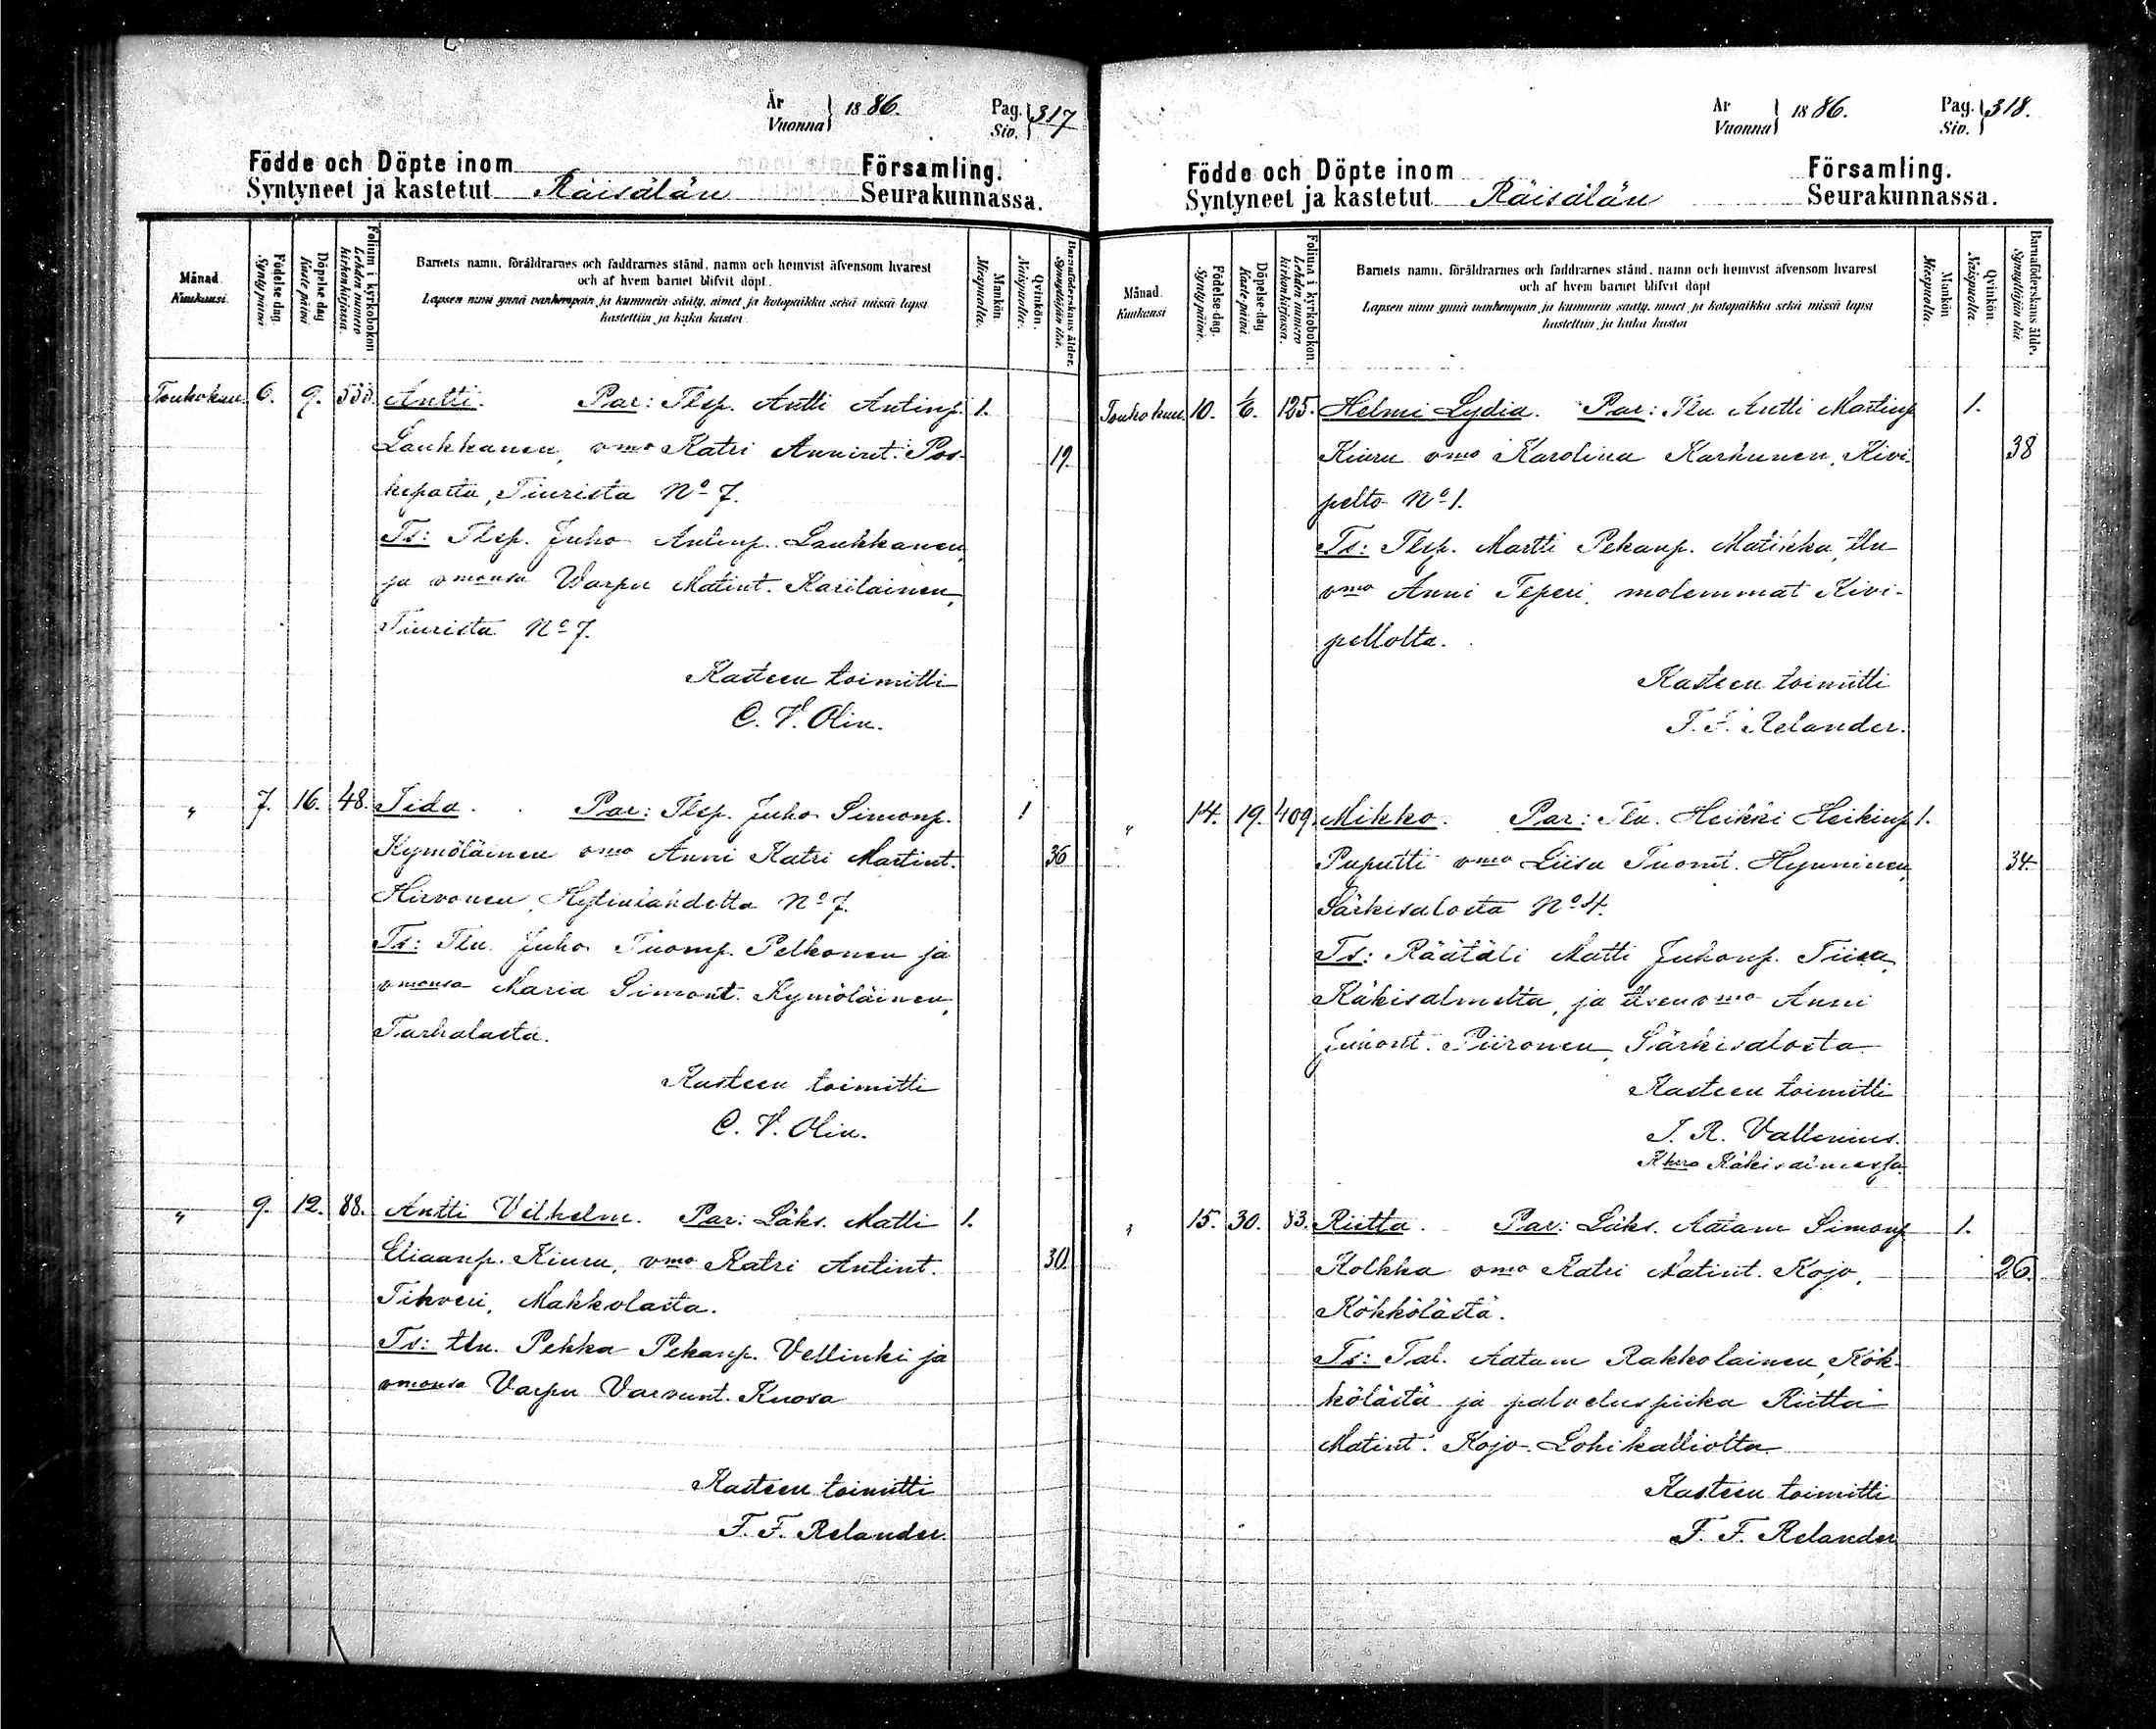 År
Vuonna } 1886. Pag.
Siv. } 317
Födde och Döpte inom Församling.
Syntyneet ja kastetut Räisälän Seurakunnassa.
Månad.
Kuukausi.
Födelse-dag.
Syntypäivä.
Döpelse-dag
Kaste-päivä
Folium i kyrkobokon
Lehden numero
kirkonkirjassa.
Barnets namn, föräldrarnes och faddrarnes stånd, namn och hemvist äfvensom hvarest
och af hvem barnet blifvit döpt.
Lapsen nimi ynnä vanhempain ja kummein sääty, nimet ja kotopaikka sekä missä lapsi
kastettiin ja kuka kastoi.
Mankön.
Miespuolia.
Qvinkön.
Naispuolia.
Barnaföderskans ålder.
Synnyttäjän ikä.
Toukokuu. 6. 9. 555. Antti. Par: Tlsp. Antti Antinp. 1.
Laukkanen, vmo Katri Annint. Pos- 19.
keparta, Tiurista No 7.
Ts: Tlsp. Juho Antinp. Laukkanen,
ja vmonsa Warpu Matint. Karilainen,
Tiurista No 7.
Kasteen toimitti
C. V. Olin.
" 7. 16. 48. Iida. Par: Tlsp. Juho Simonp. 1
Kymöläinen vmo Anni Katri Martint. 36
Hirvonen, Hytinlahdelta No 7.
Ts: Tln. Juho Tuomp. Pelkonen ja
vmonsa Maria Simont. Kymöläinen,
Tarhalasta.
Kasteen toimitti
C. V. Olin.
" 9. 12. 88. Antti Vilhelm. Par: Läks. Matti 1.
Eliaanp. Kiuru, vmo Katri Antint. 30.
Tihveri, Makkolasta.
Ts: tln. Pekka Pekanp. Vellinki ja
vmonsa Varpu Varvunt. Kuosa
Kasteen toimitti
F. F. Relander.
År
Vuonna } 1886. Pag.
Siv. } 318.
Födde och Döpte inom Församling.
Syntyneet ja kastetut Räisälän Seurakunnassa.
Månad.
Kuukausi
Födelse-dag.
Syntypäivä.
Döpelse-dag
Kaste-päivä.
Folium i kyrkobokon.
Lehden numero
kirkonkirjassa.
Barnets namn, föräldrarnes och faddrarnes stånd, namn och hemvist äfvensom hvarest
och af hvem barnet blifvit döpt
Lapsen nimi ynnä vanhempain ja kummein sääty, nimet ja kotopaikka sekä missä lapsi
kastettiin ja kuka kastoi
Mankön
Miespuolia.
Qvinkön.
Naispuolia.
Barnaföderskans ålde.
Synnyttäjän ikä.
Toukokuu. 10. 125. Helmi Lydia. Par: Tln Antti Martinp 1.
Kiuru vmo Karolina Karhunen, Kivi- 38
pelto No 1.
Ts: Tlsp. Martti Pekanp. Matikka, tln
vmo Anni Teperi, molemmat Kivi-
pellolta.
Kasteen toimitti
F. F. Relander.
" 14. 19. 409. Mikko. Par: Tln. Heikki Heikinp 1.
Paputti vmo Liisa Tuomt. Hynninen, 34
Särkisalosta No 4.
Ts: Räätäli Matti Juhonp. Tiisa,
Käkisalmelta, ja vmo Anni
Piironen, Särkisalosta
Kasteen toimitti
J. R. Vallenius.
Khra Käkisalmessa
" 15. 30. 83. Riitta. Par: Läks. Aatam Simonp 1.
Kolkka vmo Katri Matint. Kojo, 26.
Kökkölästä.
Ts: Tal. Aatam Rakkolainen, Kök-
kölästä ja palveluspiika Riitta
Matint. Kojo Lohikalliolta
Kasteen toimitti
F. F. Relander